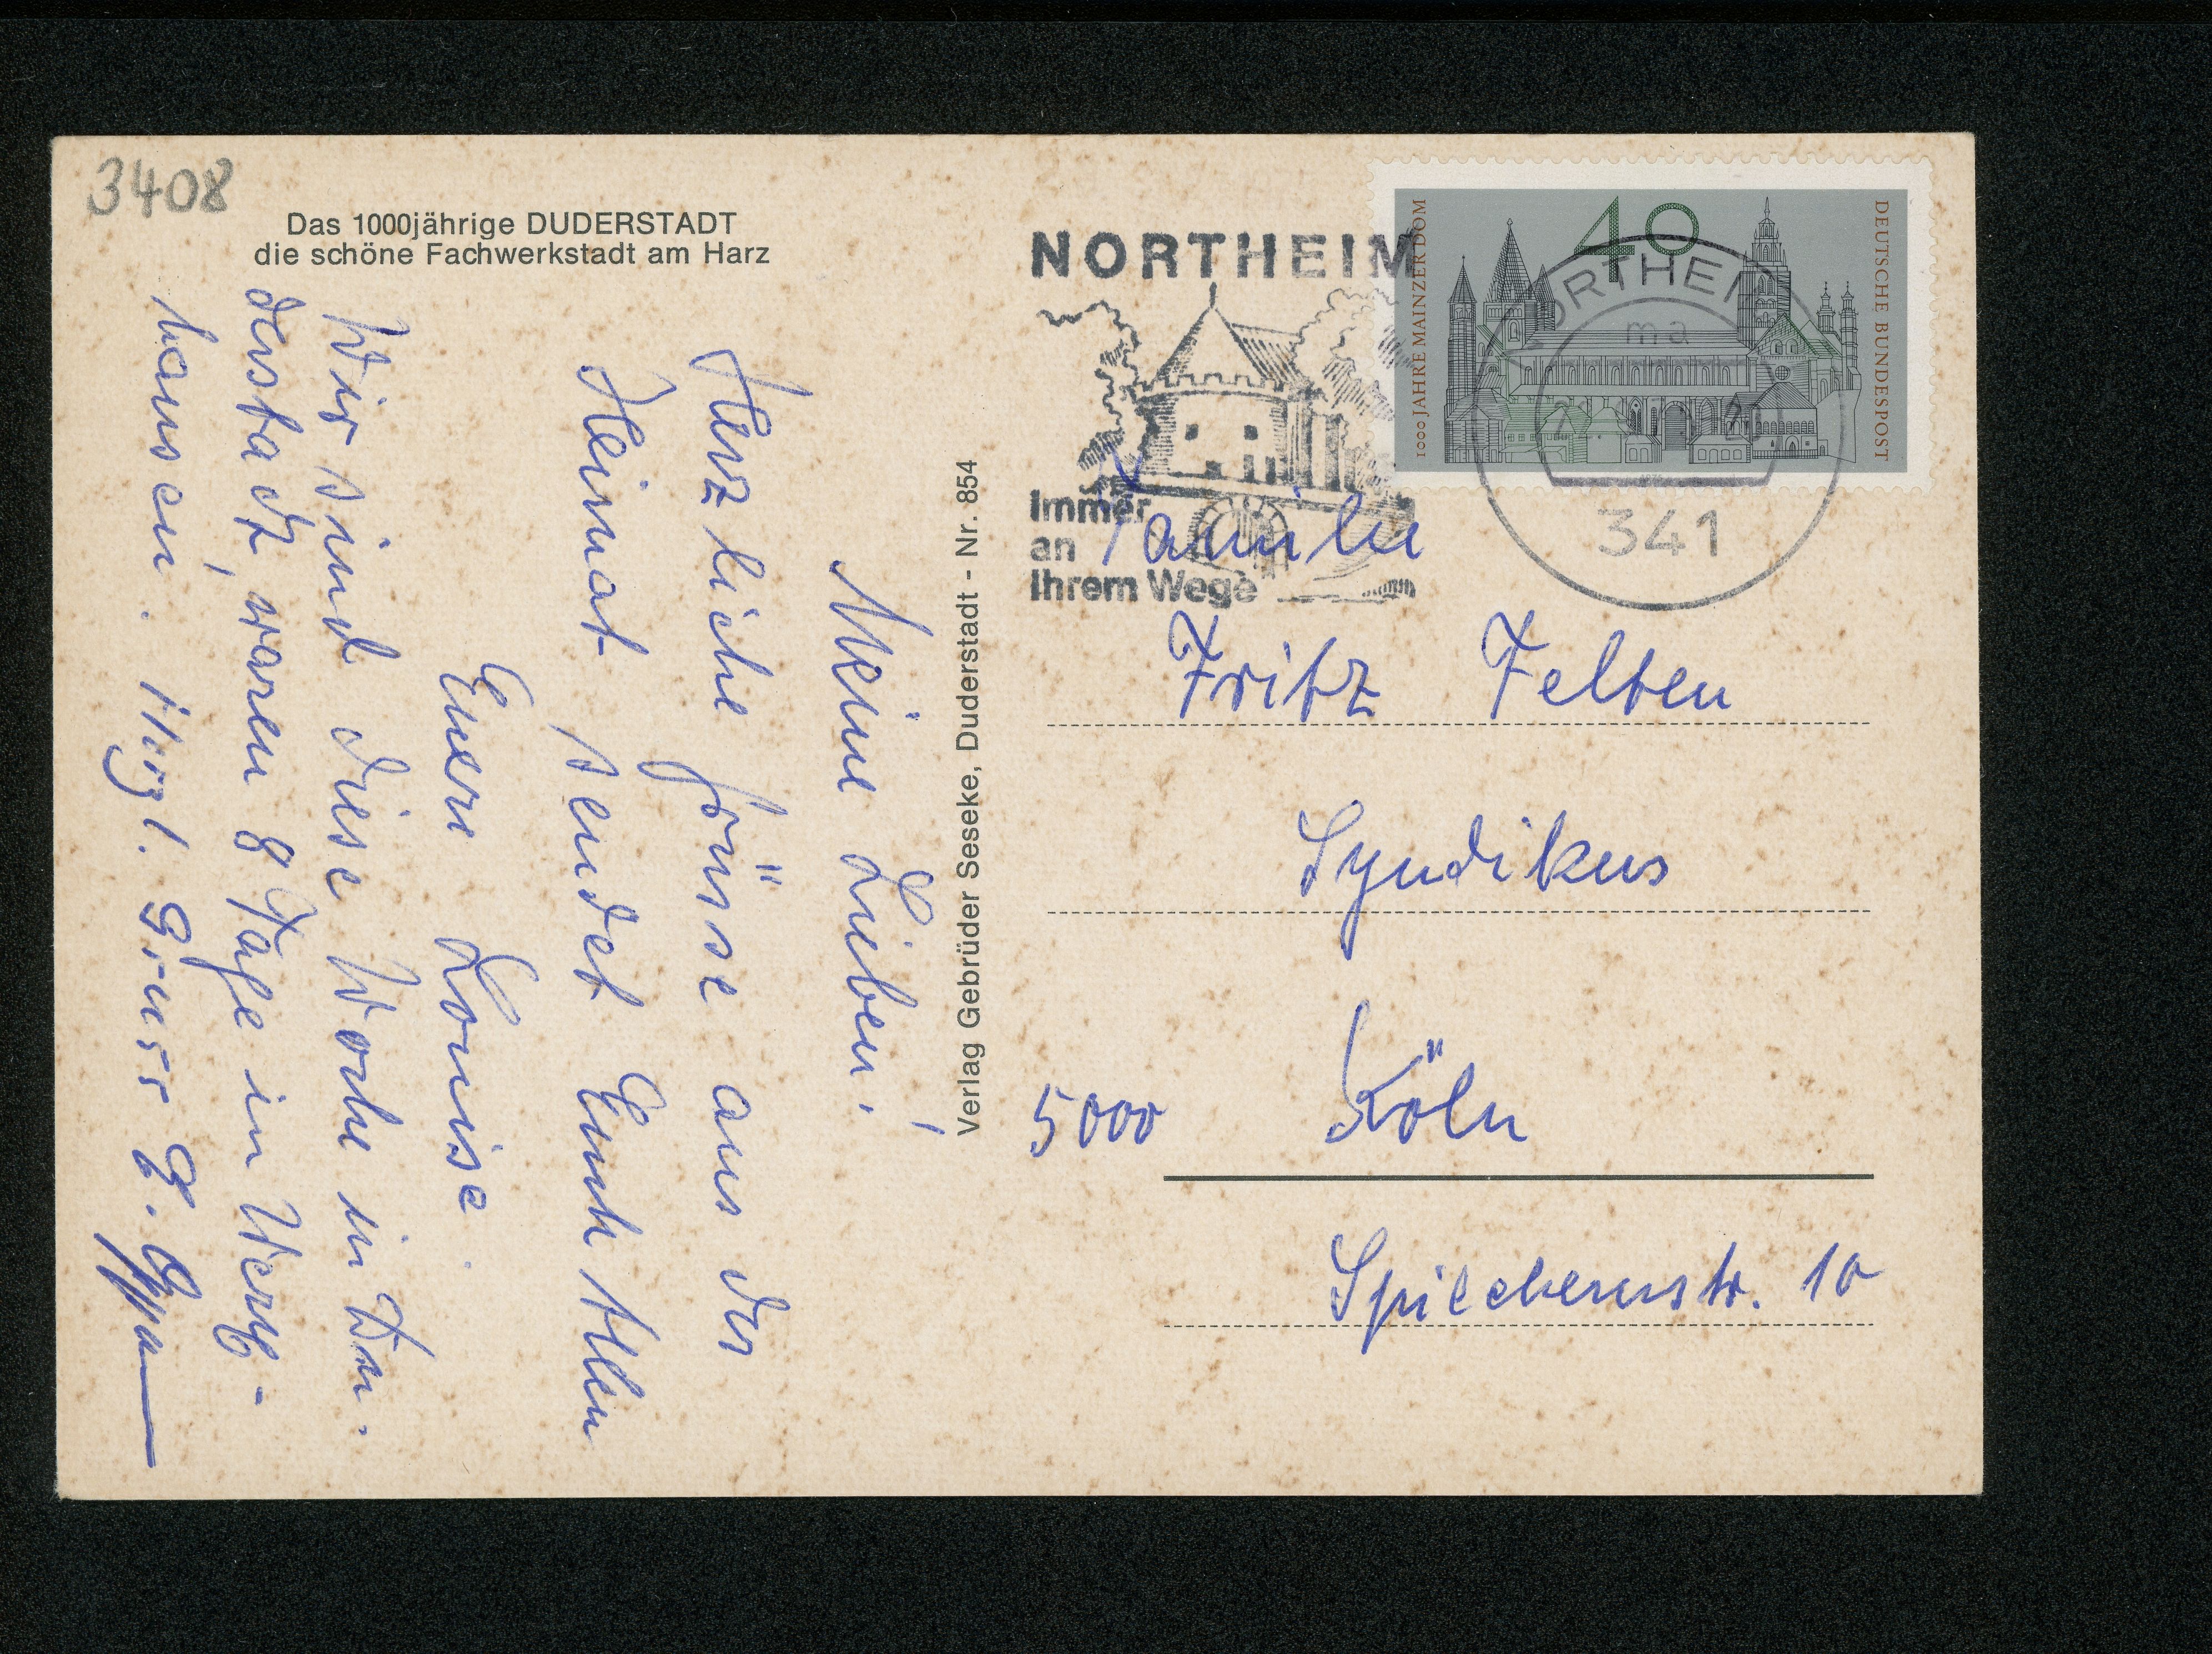 3408
Das 1000jährige DUDERSTADT
die schöne Fachwerkstadt am Harz
Meine Lieben!
Herzliche Grüsse aus der
Heimat sendet Euch Allen
Euere Louise.
Wir sind diese Woche in Du-
derstadt, waren 8 Tage in Herg-
hausen. Hrzl. Gruss
Verlag Gebrüder Seseke, Duderstadt - Nr. 854
NORTHEIM
Immer
an
Ihrem Wege
1000 JAHRE MAINZER DOM
40
DEUTSCHE BUNDESPOST
NORTHEIM
ma
341
Familie
Fritz Felten
Syndikus
5000 Köln
Spichernstr. 10